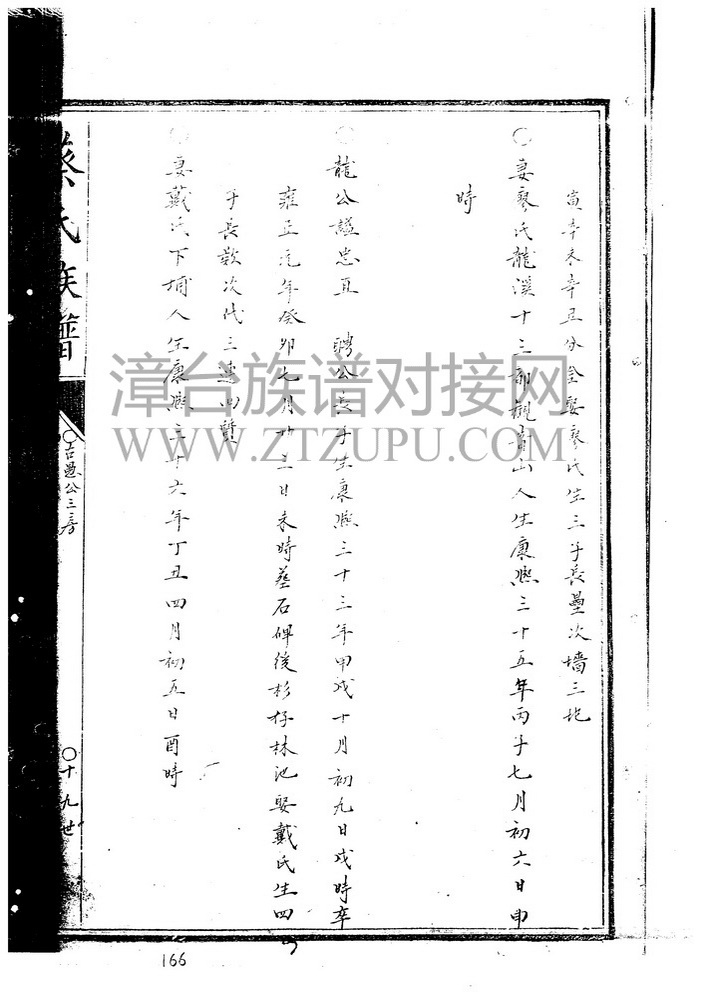 寅辛未辛丑分金娶廖氏生三子長壘次墻三圯
○妻廖氏龍溪十三都觀音山人生康熙三十五年丙子七月初六日申
時
○龍公謚忠直 聘公長子生康熙三十三年甲戌十月初九日戌時卒
雍正元年癸卯七月廿三日未時葬石碑後杉仔林池娶戴氏生四
子長歎次代三速四賢
○妻戴氏下埔人生康熙三十六年丁丑四月初五日酉時
蔡氏族譜
○古愚公三房
○十九世
166
漳台族谱对接网
WWW.ZTZUPU.COM